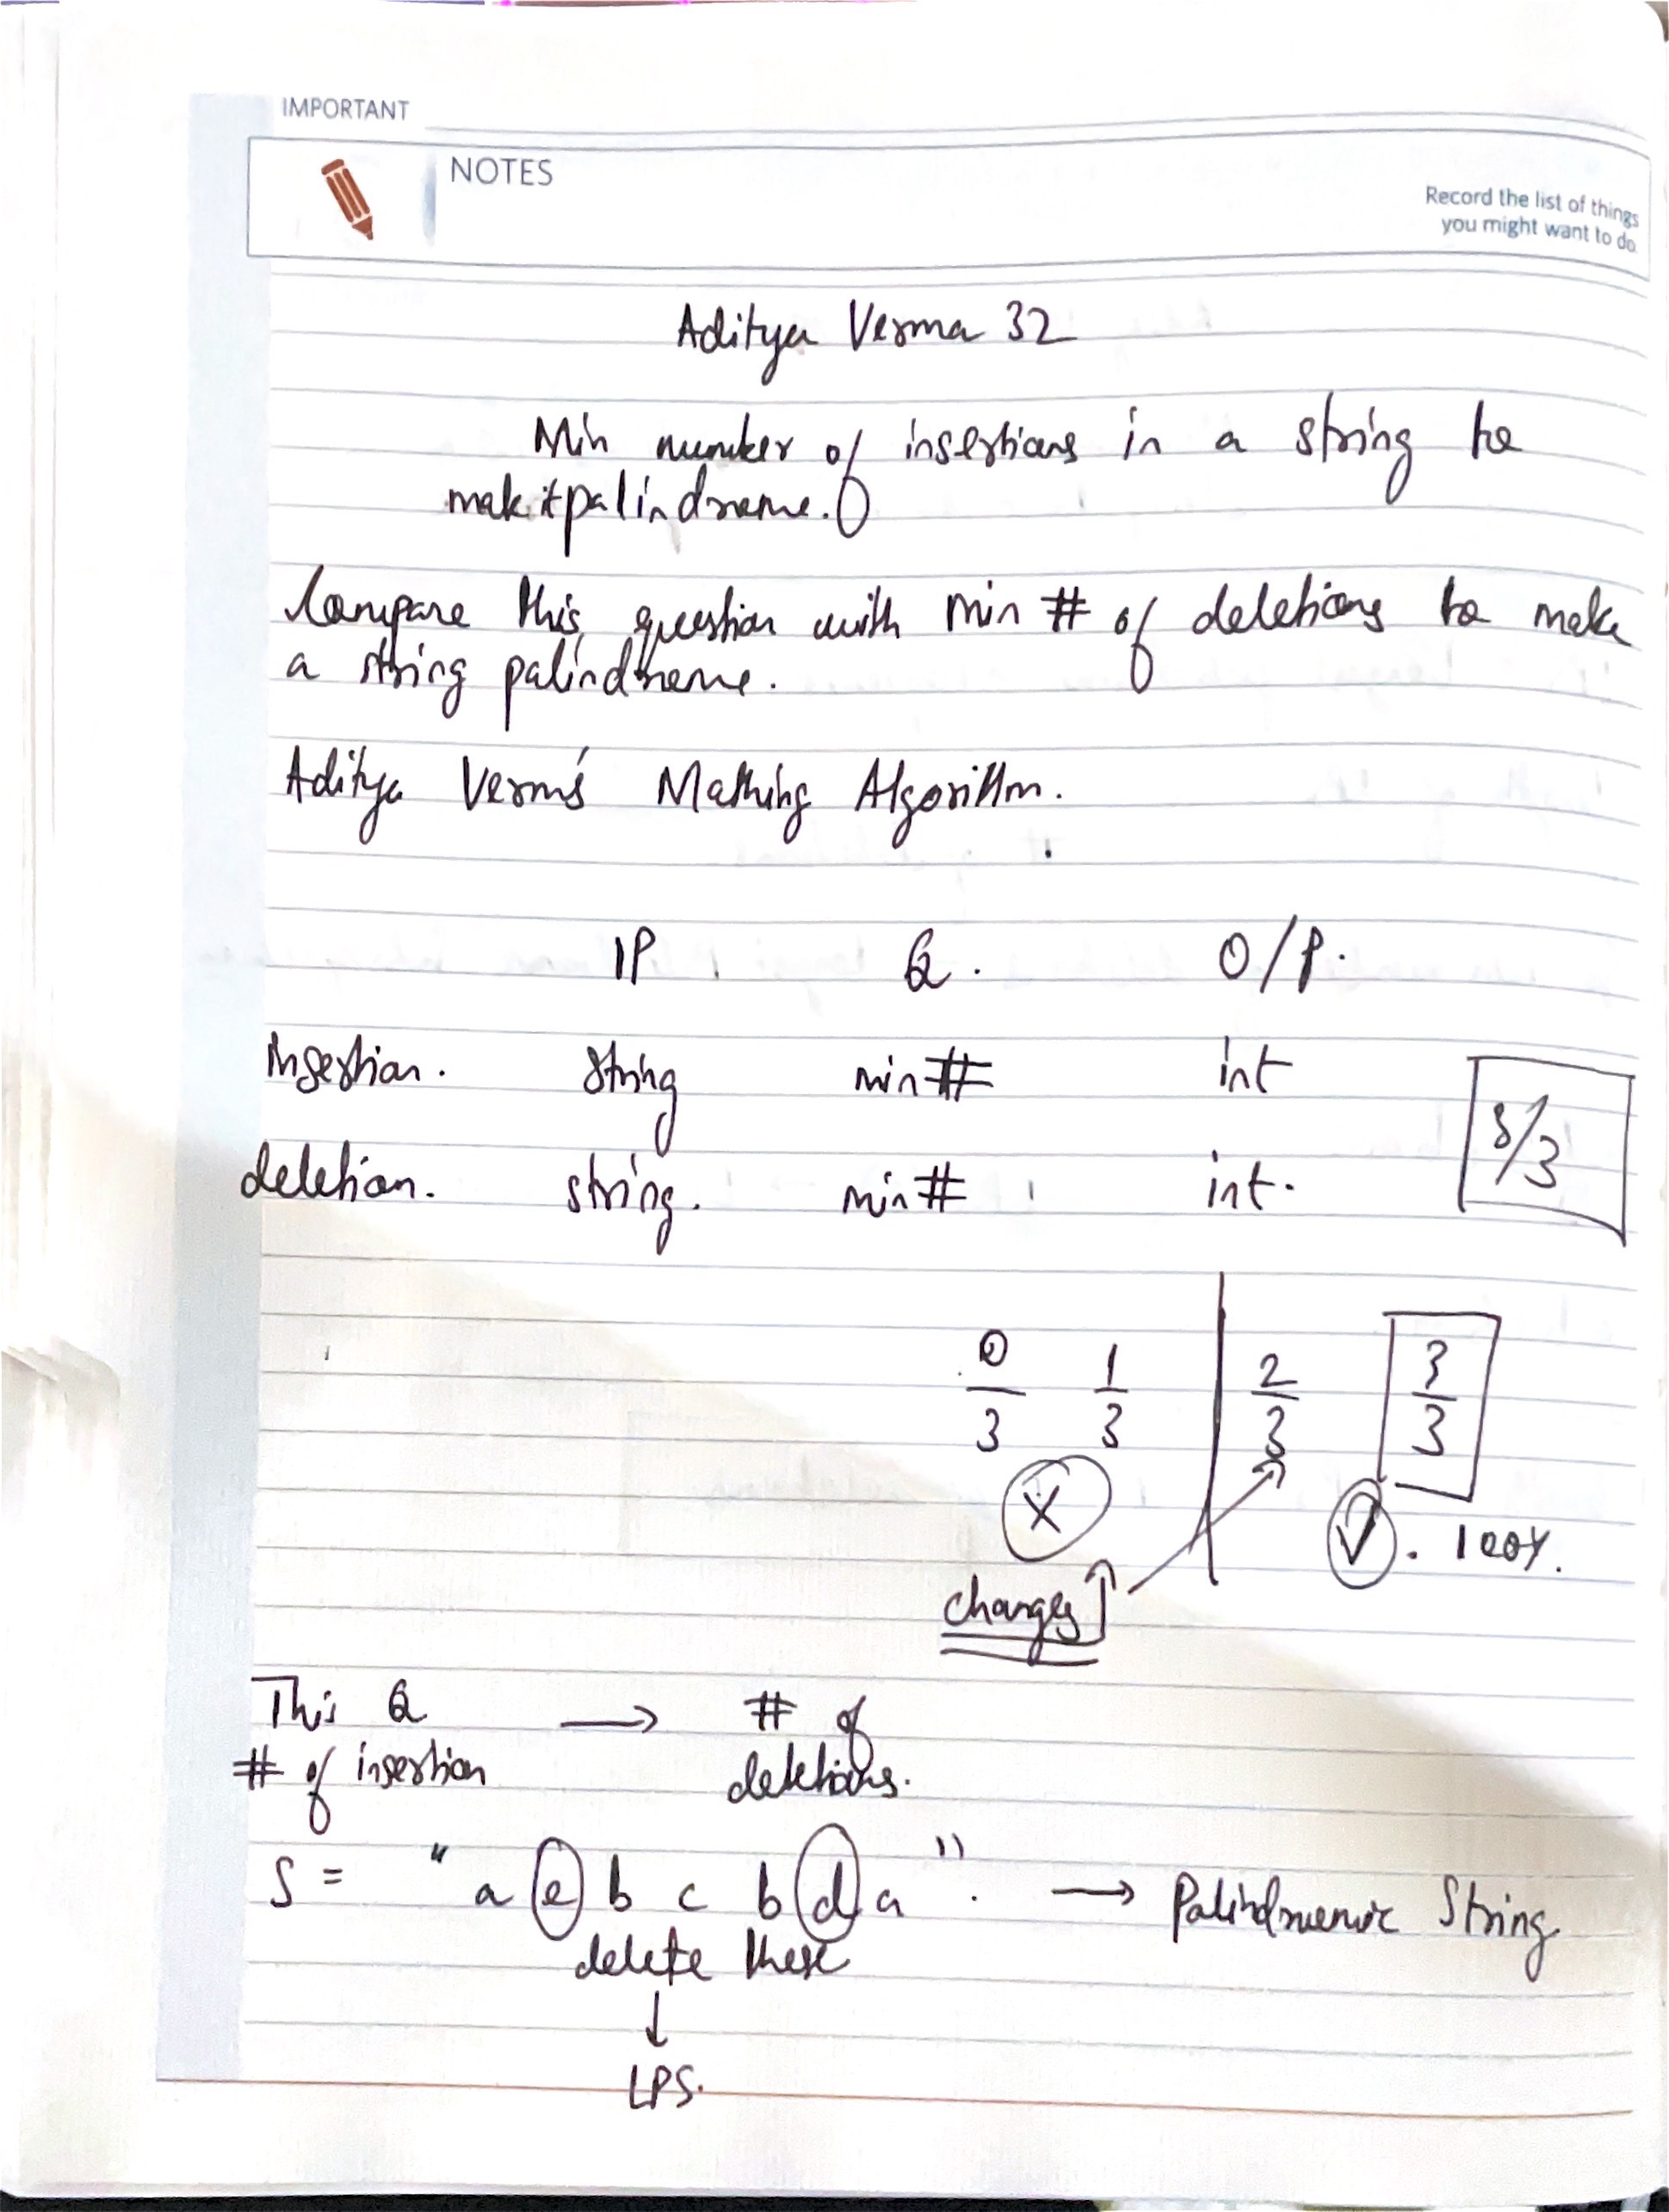 IMPORTANT
NOTES
Record the list of things
you might want to do
Aditya Verma 32
Min number of insertions in a string to
mak it palindrome.
Compare this question with min # of deletions to make
a string palindrome.
Aditya Verm's Mathing Algorithm.
IP Q. O/P.
Insertion. string min # int
deletion. string. min # int.
3/3
0/3 1/3 2/3 3/3
X ✓. 100%.
changes ↑
This Q → # of
# of insertion deletions.
S = " a e b c b d a ". → Palindromic String
delete these
↓
LPS.